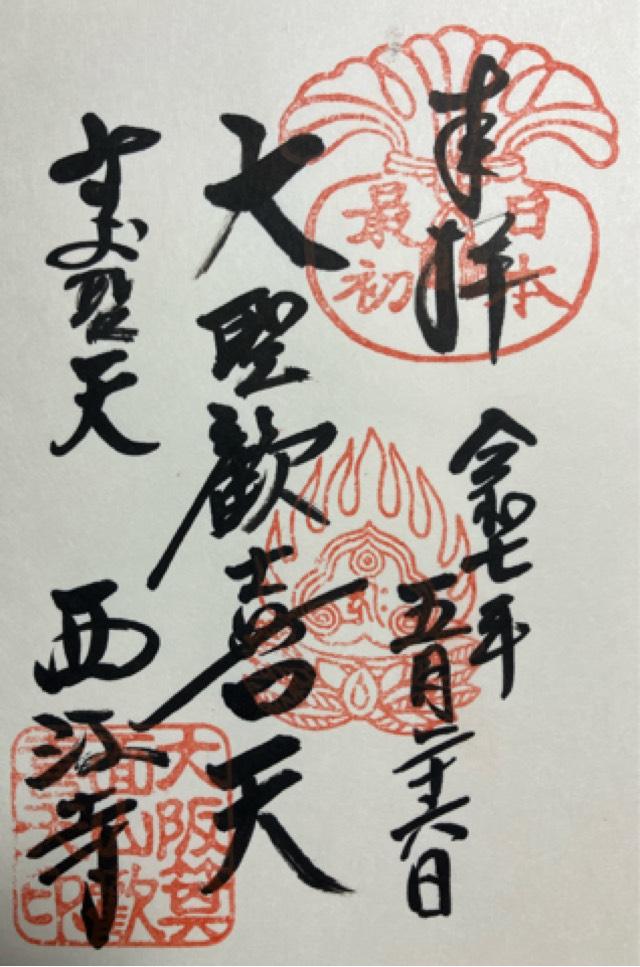 奉拝
日本
最初
令和七年
五月二十六日
大聖歓喜天
みのお聖天
西江寺
大阪箕
面山歓
喜天印